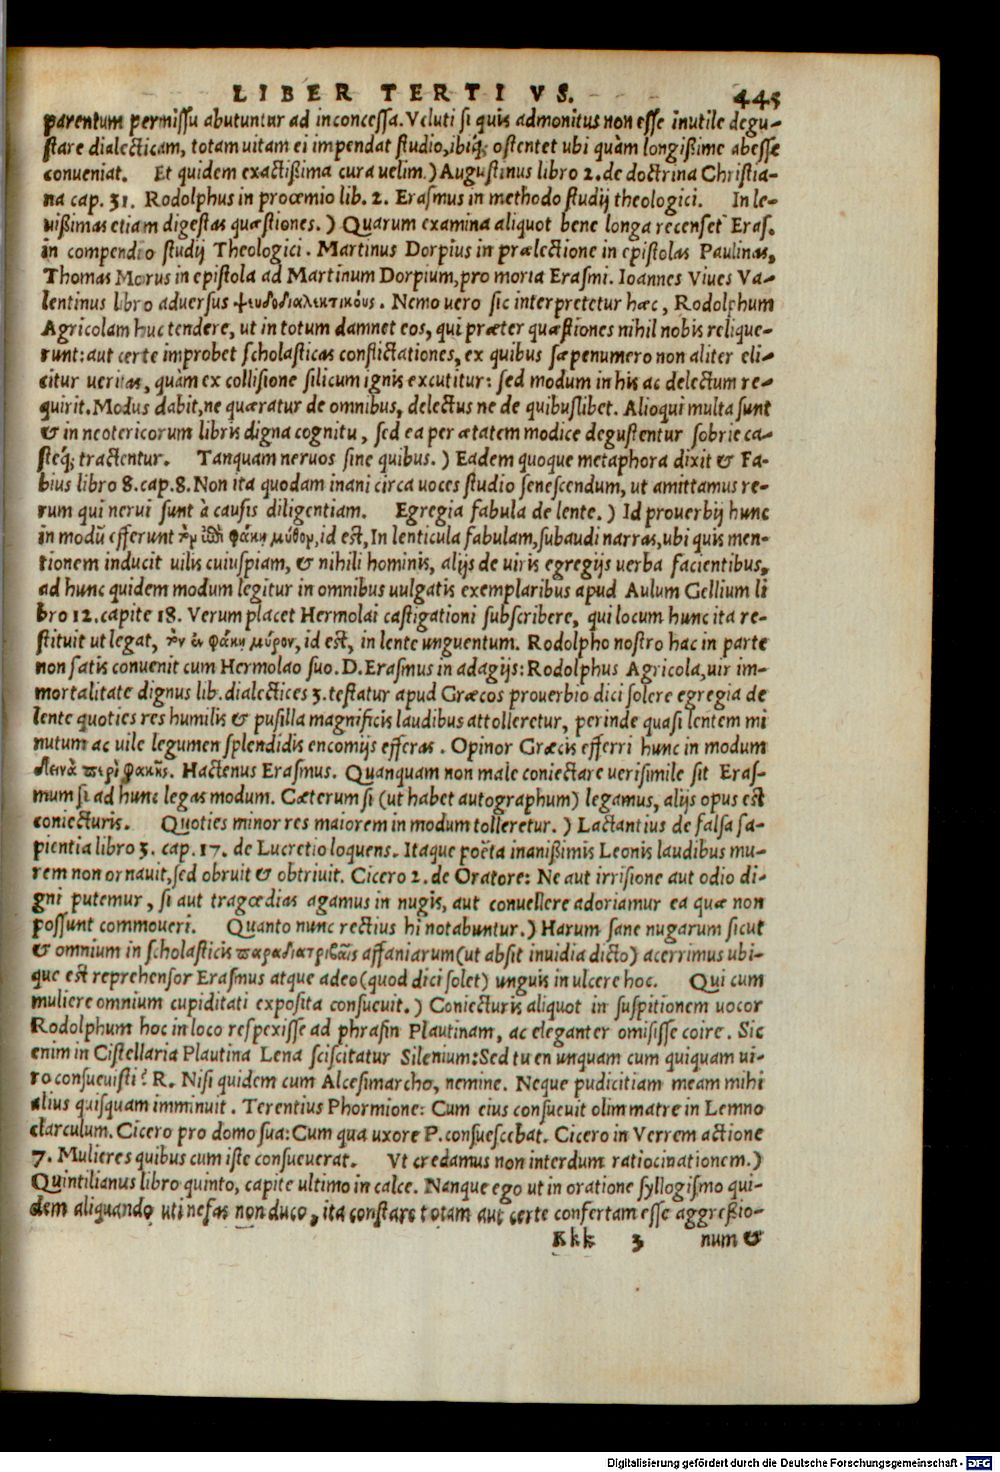 LIBER TERTIVS. 445
parentum permissu abutuntur ad inconcessa. Veluti si quis admonitus non esse inutile degu-
stare dialecticam, totam uitam ei impendat studio, ibiq́; ostentet ubi quàm longißime abesse
conueniat. Et quidem exactißima cura uelim.) Augustinus libro 2. de doctrina Christia-
na cap. 31. Rodolphus in procemio lib. 2. Erasmus in methodo studij theologici. In le-
uißimas etiam digestas quæstiones.) Quarum examina aliquot bene longa recenset Eras.
in compendio studij Theologici. Martinus Dorpius in prælectione in epistolas Paulinas,
Thomas Morus in epistola ad Martinum Dorpium, pro moria Erasmi. Ioannes Viues Va-
lentinus libro aduersus ψευδοδιαλεκτικούς. Nemo uero sic interpretetur hæc, Rodolphum
Agricolam huc tendere, ut in totum damnet eos, qui præter quæstiones nihil nobis relique-
runt: aut certe improbet scholasticas conflictationes, ex quibus sæpenumero non aliter eli-
citur ueritas, quàm ex collisione silicum ignis excutitur: sed modum in his ac delectum re-
quirit. Modus dabit, ne quæratur de omnibus, delectus ne de quibuslibet. Alioqui multa sunt
& in neotericorum libris digna cognitu, sed ea per ætatem modice degustentur sobrie ca-
steq́; tractentur. Tanquam neruos sine quibus.) Eadem quoque metaphora dixit & Fa-
bius libro 8. cap. 8. Non ita quodam inani circa uoces studio senescendum, ut amittamus re-
rum qui nerui sunt à causis diligentiam. Egregia fabula de lente.) Id prouerbij hunc
in modū efferunt φάκη μῦθον, id est, In lenticula fabulam, subaudi narras, ubi quis men-
tionem inducit uilis cuiuspiam, & nihili hominis, alijs de uiris egregijs uerba facientibus,
ad hunc quidem modum legitur in omnibus uulgatis exemplaribus apud Aulum Gellium li
bro 12. capite 18. Verum placet Hermolai castigationi subscribere, qui locum hunc ita re-
stituit ut legat, τὸν ἐν φάκῃ μύρον, id est, in lente unguentum. Rodolpho nostro hac in parte
non satis conuenit cum Hermolao suo. D. Erasmus in adagijs: Rodolphus Agricola, uir im-
mortalitate dignus lib. dialectices 3. testatur apud Græcos prouerbio dici solere egregia de
lente quoties res humilis & pusilla magnificis laudibus attolleretur, perinde quasi lentem mi
nutum ac uile legumen splendidis encomijs efferas. Opinor Græcis efferri hunc in modum
δεινὰ περὶ φακῆς. Hactenus Erasmus. Quanquam non male coniectare uerisimile sit Eras-
mum si ad hunc legas modum. Cæterum si (ut habet autographum) legamus, alijs opus est
coniecturis. Quoties minor res maiorem in modum tolleretur.) Lactantius de falsa sa-
pientia libro 3. cap. 17. de Lucretio loquens. Itaque poëta inanißimis Leonis laudibus mu-
rem non ornauit, sed obruit & obtriuit. Cicero 2. de Oratore: Ne aut irrisione aut odio di-
gni putemur, si aut tragœdias agamus in nugis, aut conuellere adoriamur ea quæ non
possunt commoueri. Quanto nunc rectius hi notabuntur.) Harum sane nugarum sicut
& omnium in scholasticis παραδιατριβαῖς affaniarum (ut absit inuidia dicto) acerrimus ubi-
que est reprehensor Erasmus atque adeo (quod dici solet) unguis in ulcere hoc. Qui cum
muliere omnium cupiditati exposita consueuit.) Coniecturis aliquot in suspitionem uocor
Rodolphum hoc in loco respexisse ad phrasin Plautinam, ac eleganter omisisse coire. Sic
enim in Cistellaria Plautina Lena sciscitatur Silenium: Sed tu en unquam cum quiquam ui-
ro consueuisti? R. Nisi quidem cum Alcesimarcho, nemine. Neque pudicitiam meam mihi
alius quisquam imminuit. Terentius Phormione: Cum eius consueuit olim matre in Lemno
clarculum. Cicero pro domo sua: Cum qua uxore P. consuescebat. Cicero in Verrem actione
7. Mulieres quibus cum iste consueuerat. Vt credamus non interdum ratiocinationem.)
Quintilianus libro quinto, capite ultimo in calce. Nanque ego ut in oratione syllogismo qui-
dem aliquando uti nefas non duco, ita constare totam aut certe confertam esse aggreßio-
Kkk 3 num &
Digitalisierung gefördert durch die Deutsche Forschungsgemeinschaft - DFG